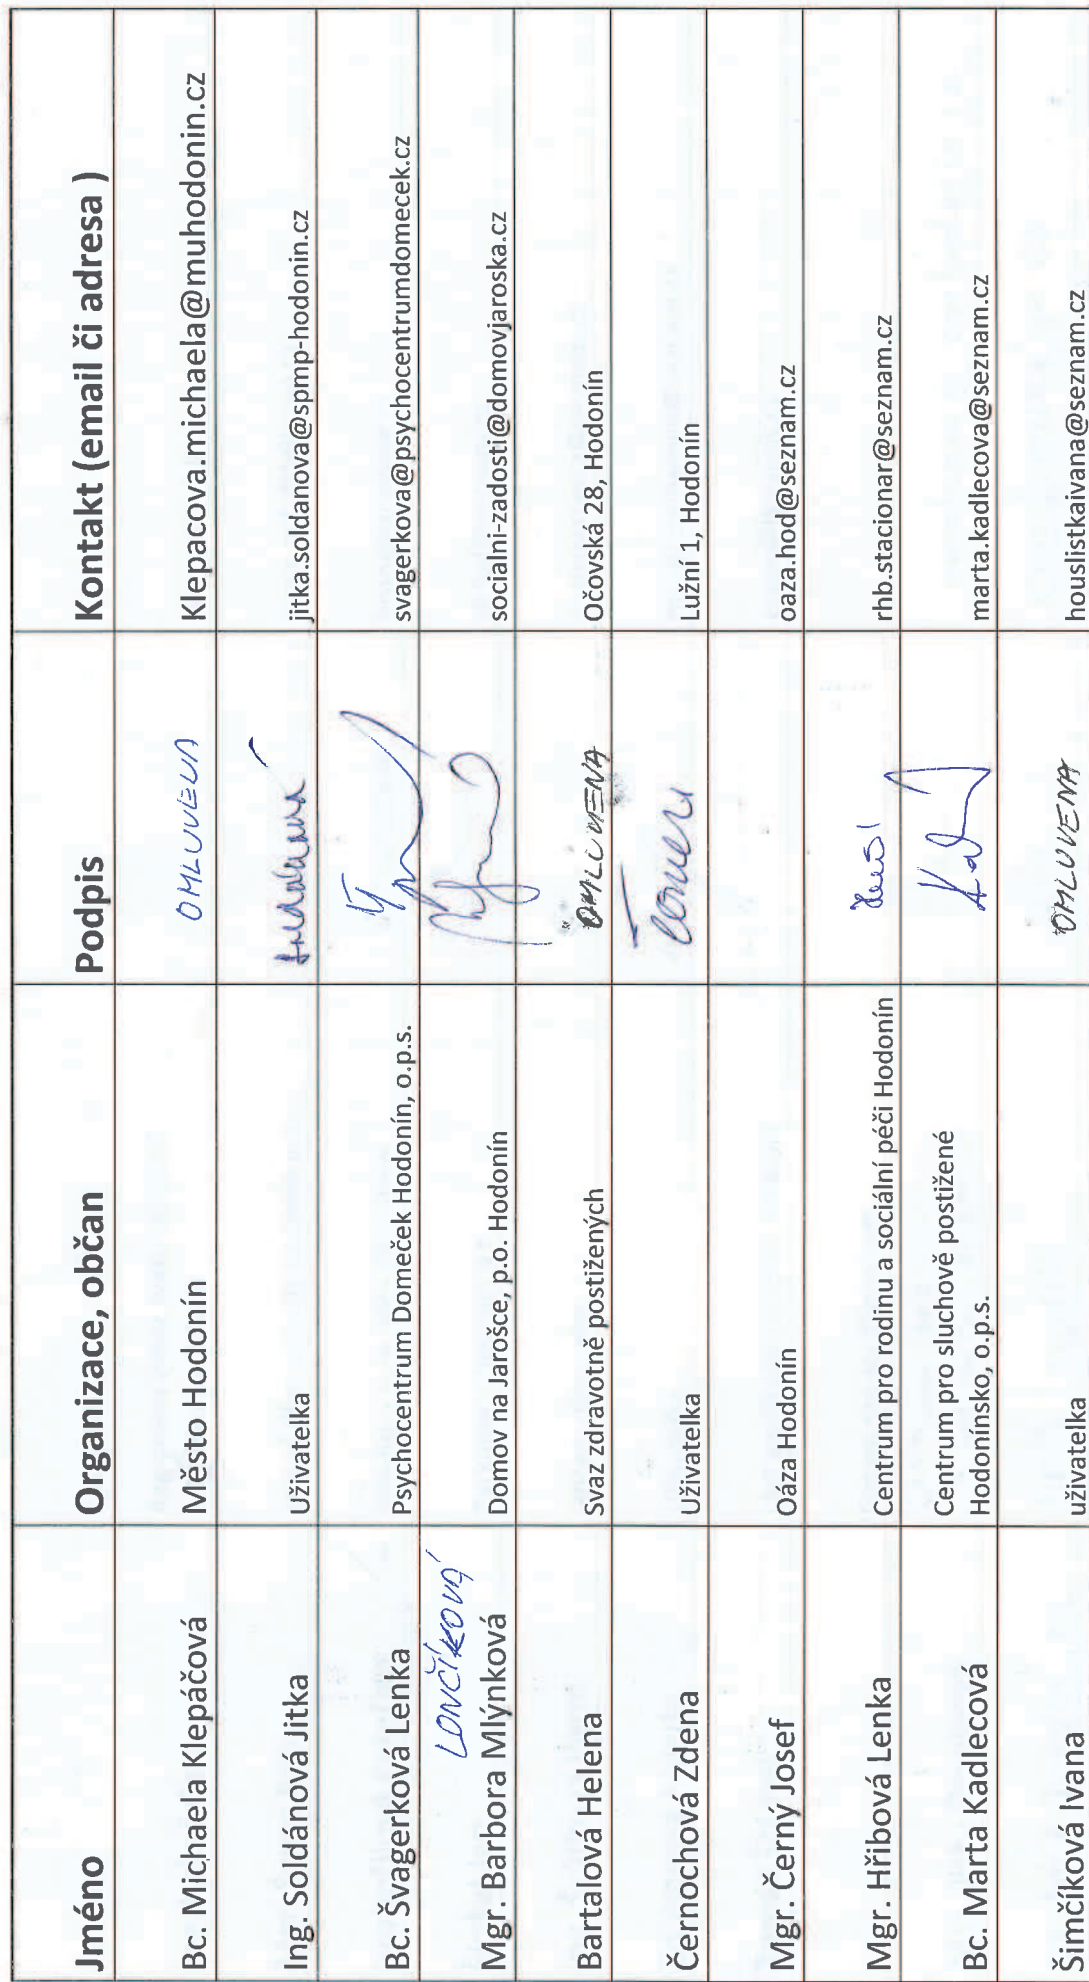 Jméno Organizace, občan Podpis Kontakt (email či adresa )
Bc. Michaela Klepáčová Město Hodonín OMLUVENA Klepacova.michaela@muhodonin.cz
Ing. Soldánová Jitka Uživatelka jitka.soldanova@spmp-hodonin.cz
Bc. Švagerková Lenka Psychocentrum Domeček Hodonín, o.p.s. svagerkova@psychocentrumdomecek.cz
LONČÍKOVÁ
Mgr. Barbora Mlýnková Domov na Jarošce, p.o. Hodonín socialni-zadosti@domovjaroska.cz
Bartalová Helena Svaz zdravotně postižených OMLUVENA Očovská 28, Hodonín
Černochová Zdena Uživatelka Lužní 1, Hodonín
Mgr. Černý Josef Oáza Hodonín oaza.hod@seznam.cz
Mgr. Hřibová Lenka Centrum pro rodinu a sociální péči Hodonín rhb.stacionar@seznam.cz
Bc. Marta Kadlecová Centrum pro sluchově postižené
Hodonínsko, o.p.s. marta.kadlecova@seznam.cz
Šimčíková Ivana uživatelka OMLUVENA houslistkaivana@seznam.cz